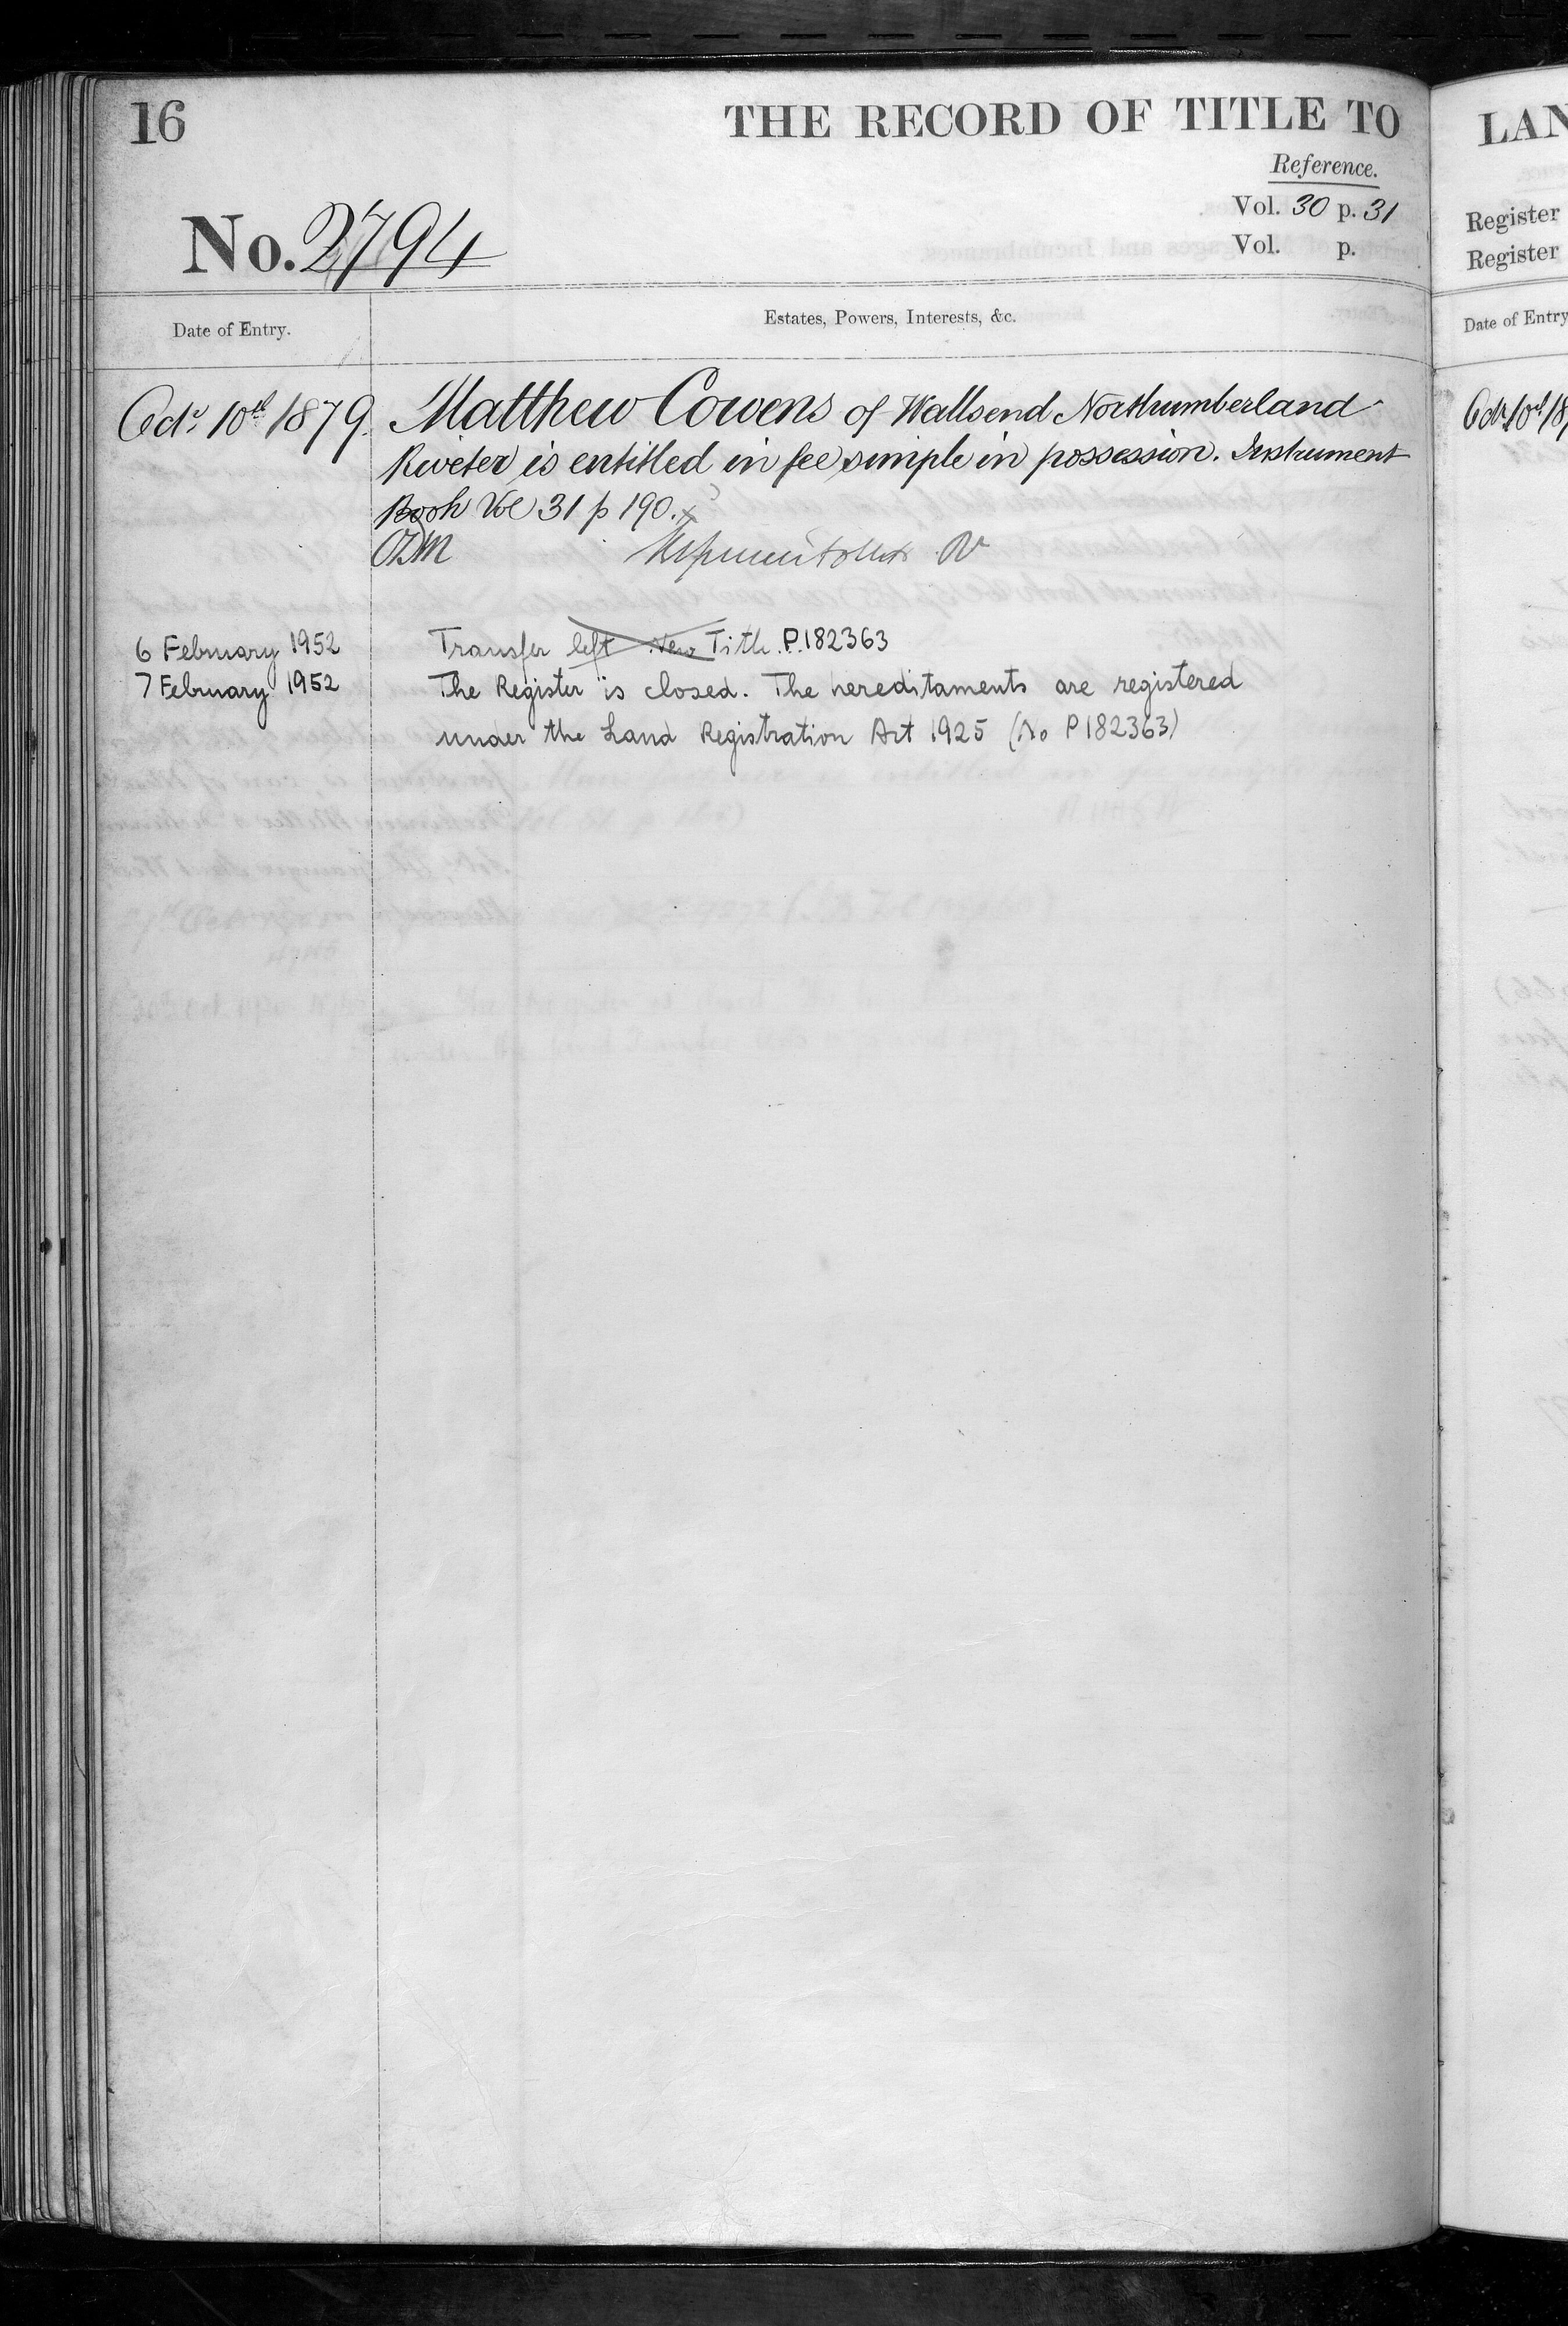 16
THE RECORD OF TITLE TO
Reference.
Vol. 30 p. 31
No. 2794
Vol. p.
Date of Entry.
Estates, Powers, Interests, &c.
Octr. 10th 1879. Matthew Cowens of Wallsend Northumberland
Riveter is entitled in fee simple in possession. Instrument
Book Vol 31 p 190.
6 February 1952 Transfer left New Title P.182363
7 February 1952 The Register is closed. The hereditaments are registered
under the Land Registration Act 1925 (No P182363)
LAN
Register
Register
Date of Entry
Octr. 10th 18